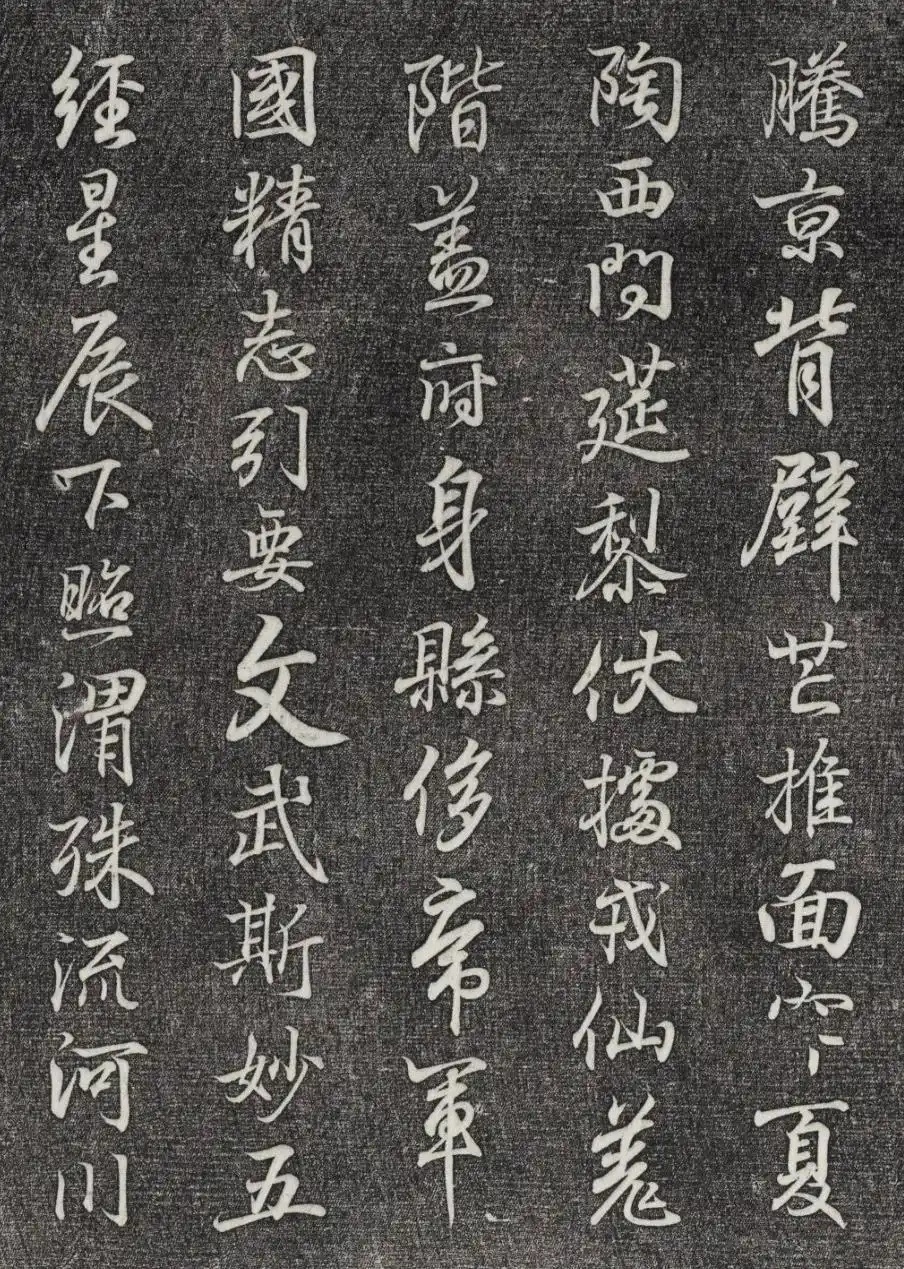 騰京背壁芒推面宇夏
陶西閇莚黎伏據戎仙羌
階蓋府身縣侈帝軍
國精志引要文武斯妙五
經星辰下照渭殊流河川